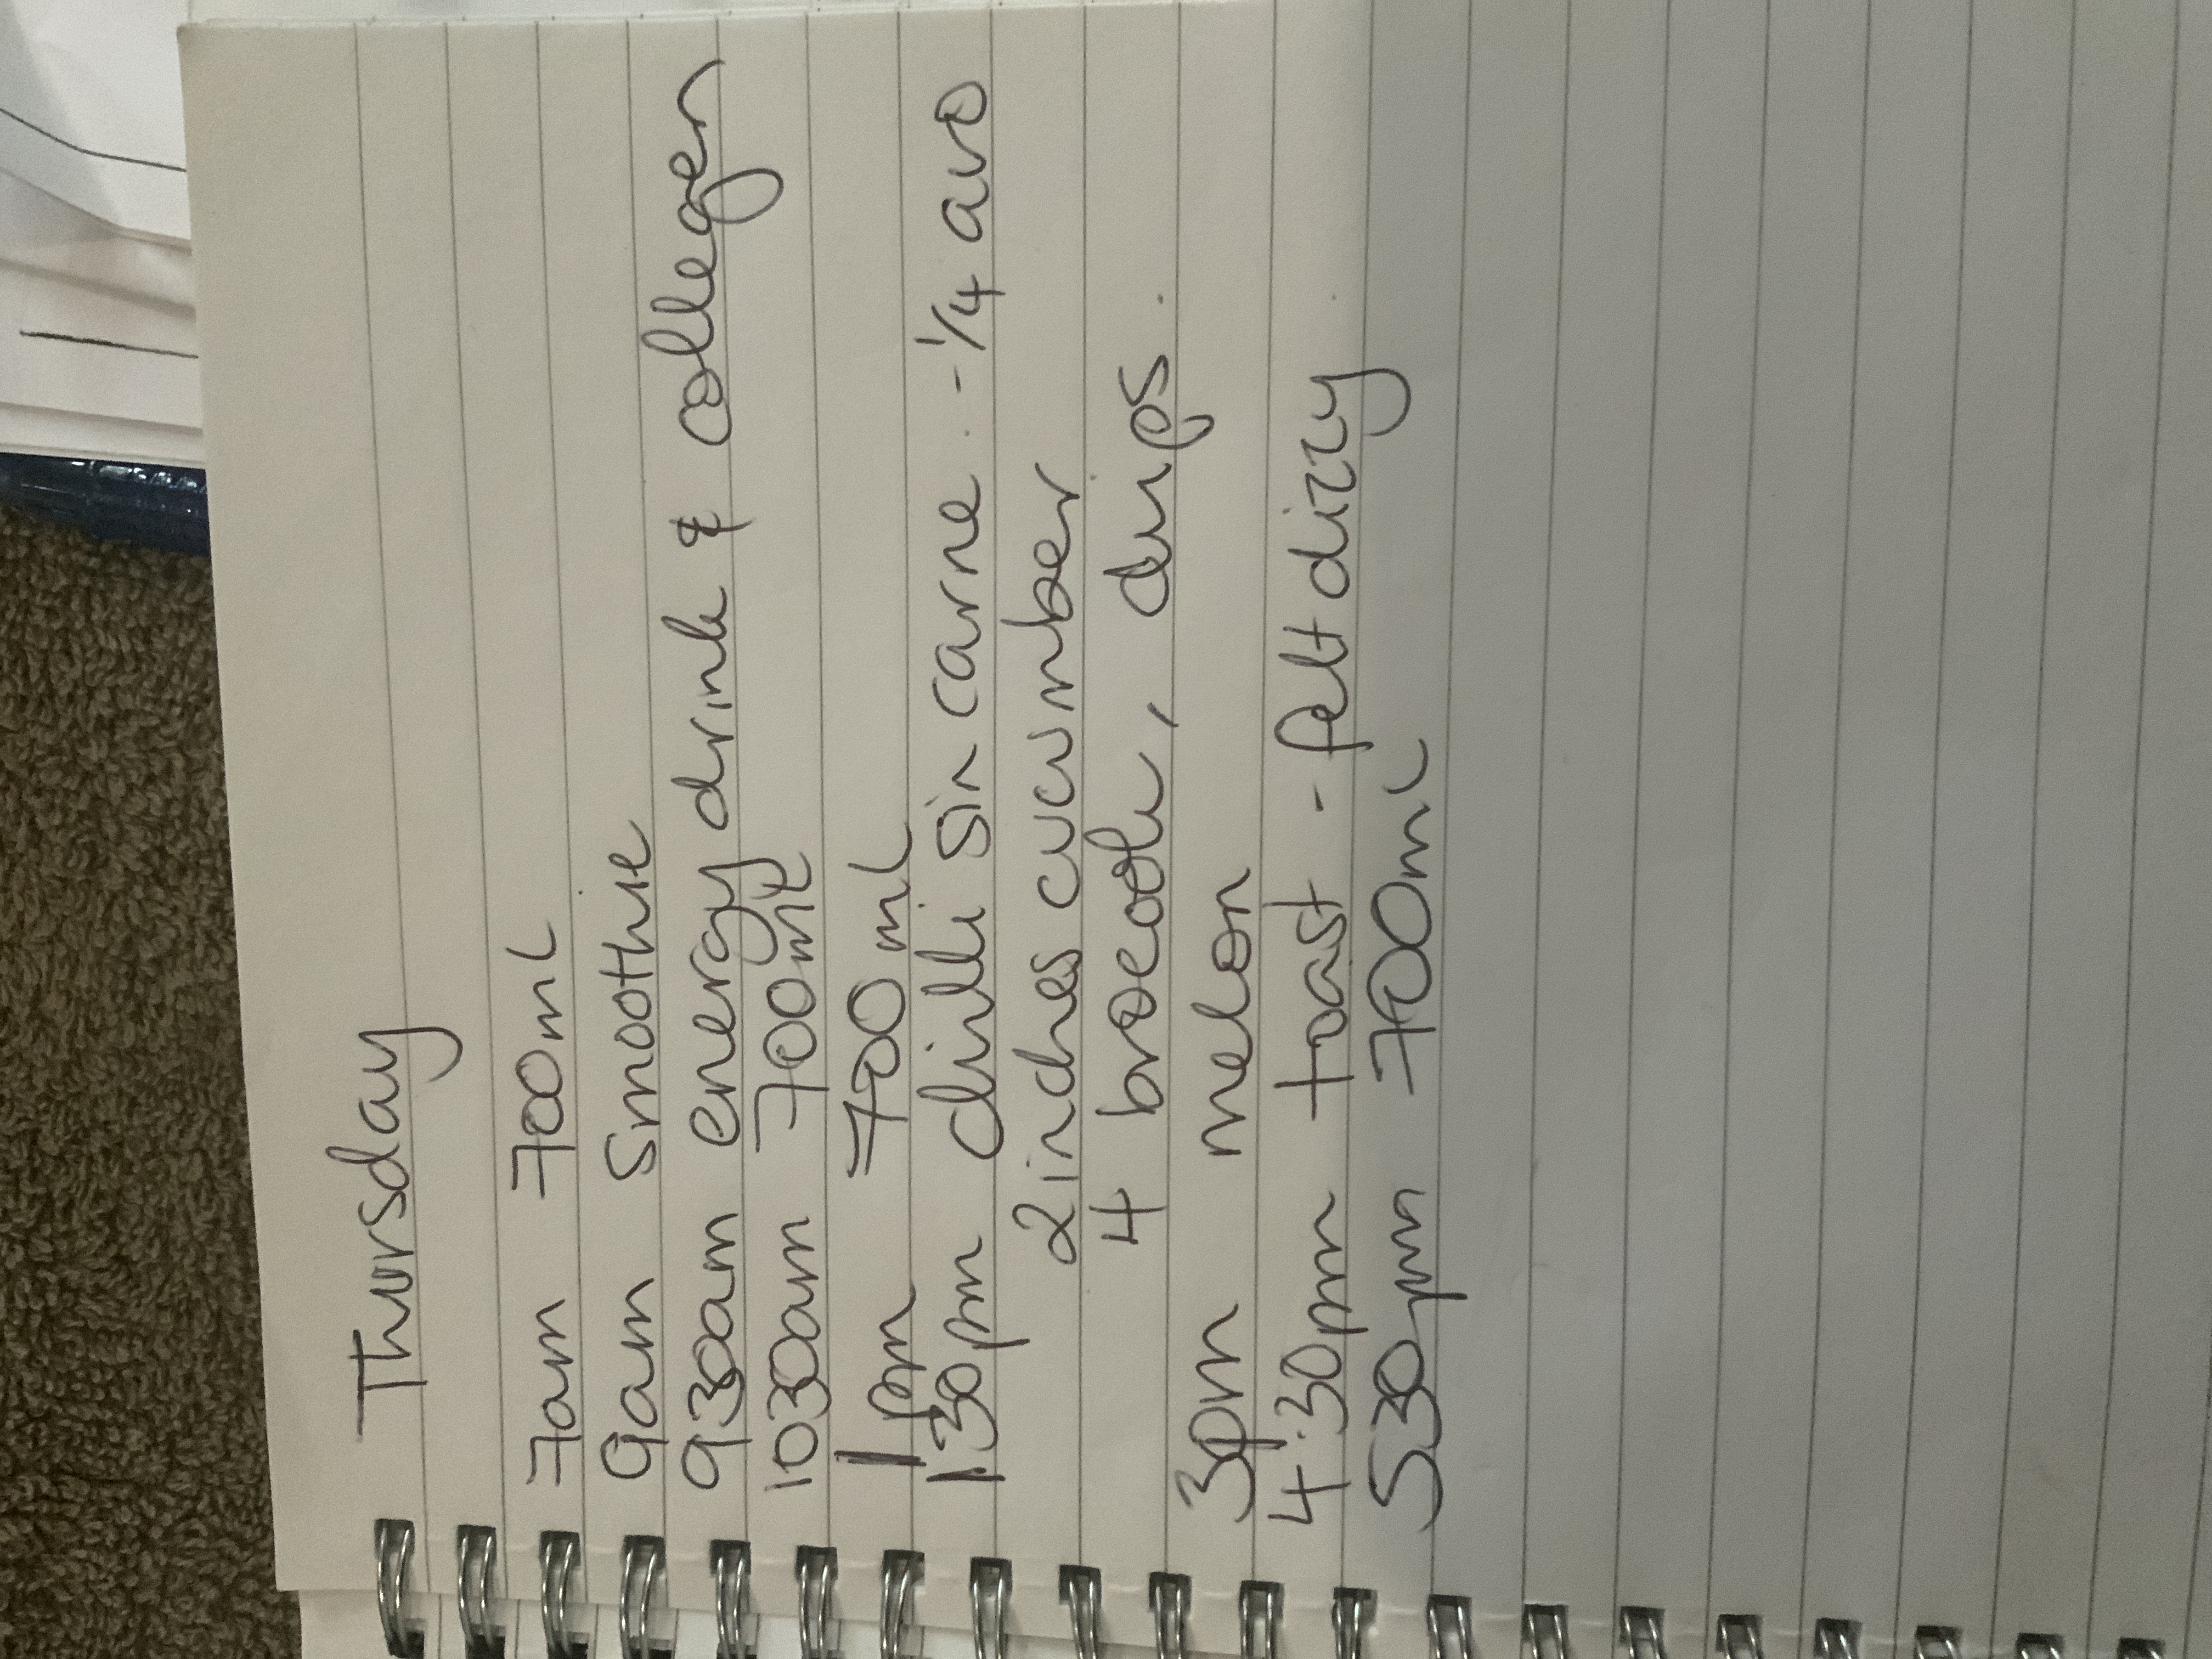 Thursday
7am 700ml
9am Smoothie
930am energy drink & collegen
1030am 700ml
1pm 700ml
1.30pm chilli sin carne - 1/4 avo
2 inches cucumber
4 brocoli, chips.
3pm melon
4.30pm toast - felt dizzy
530pm 700ml